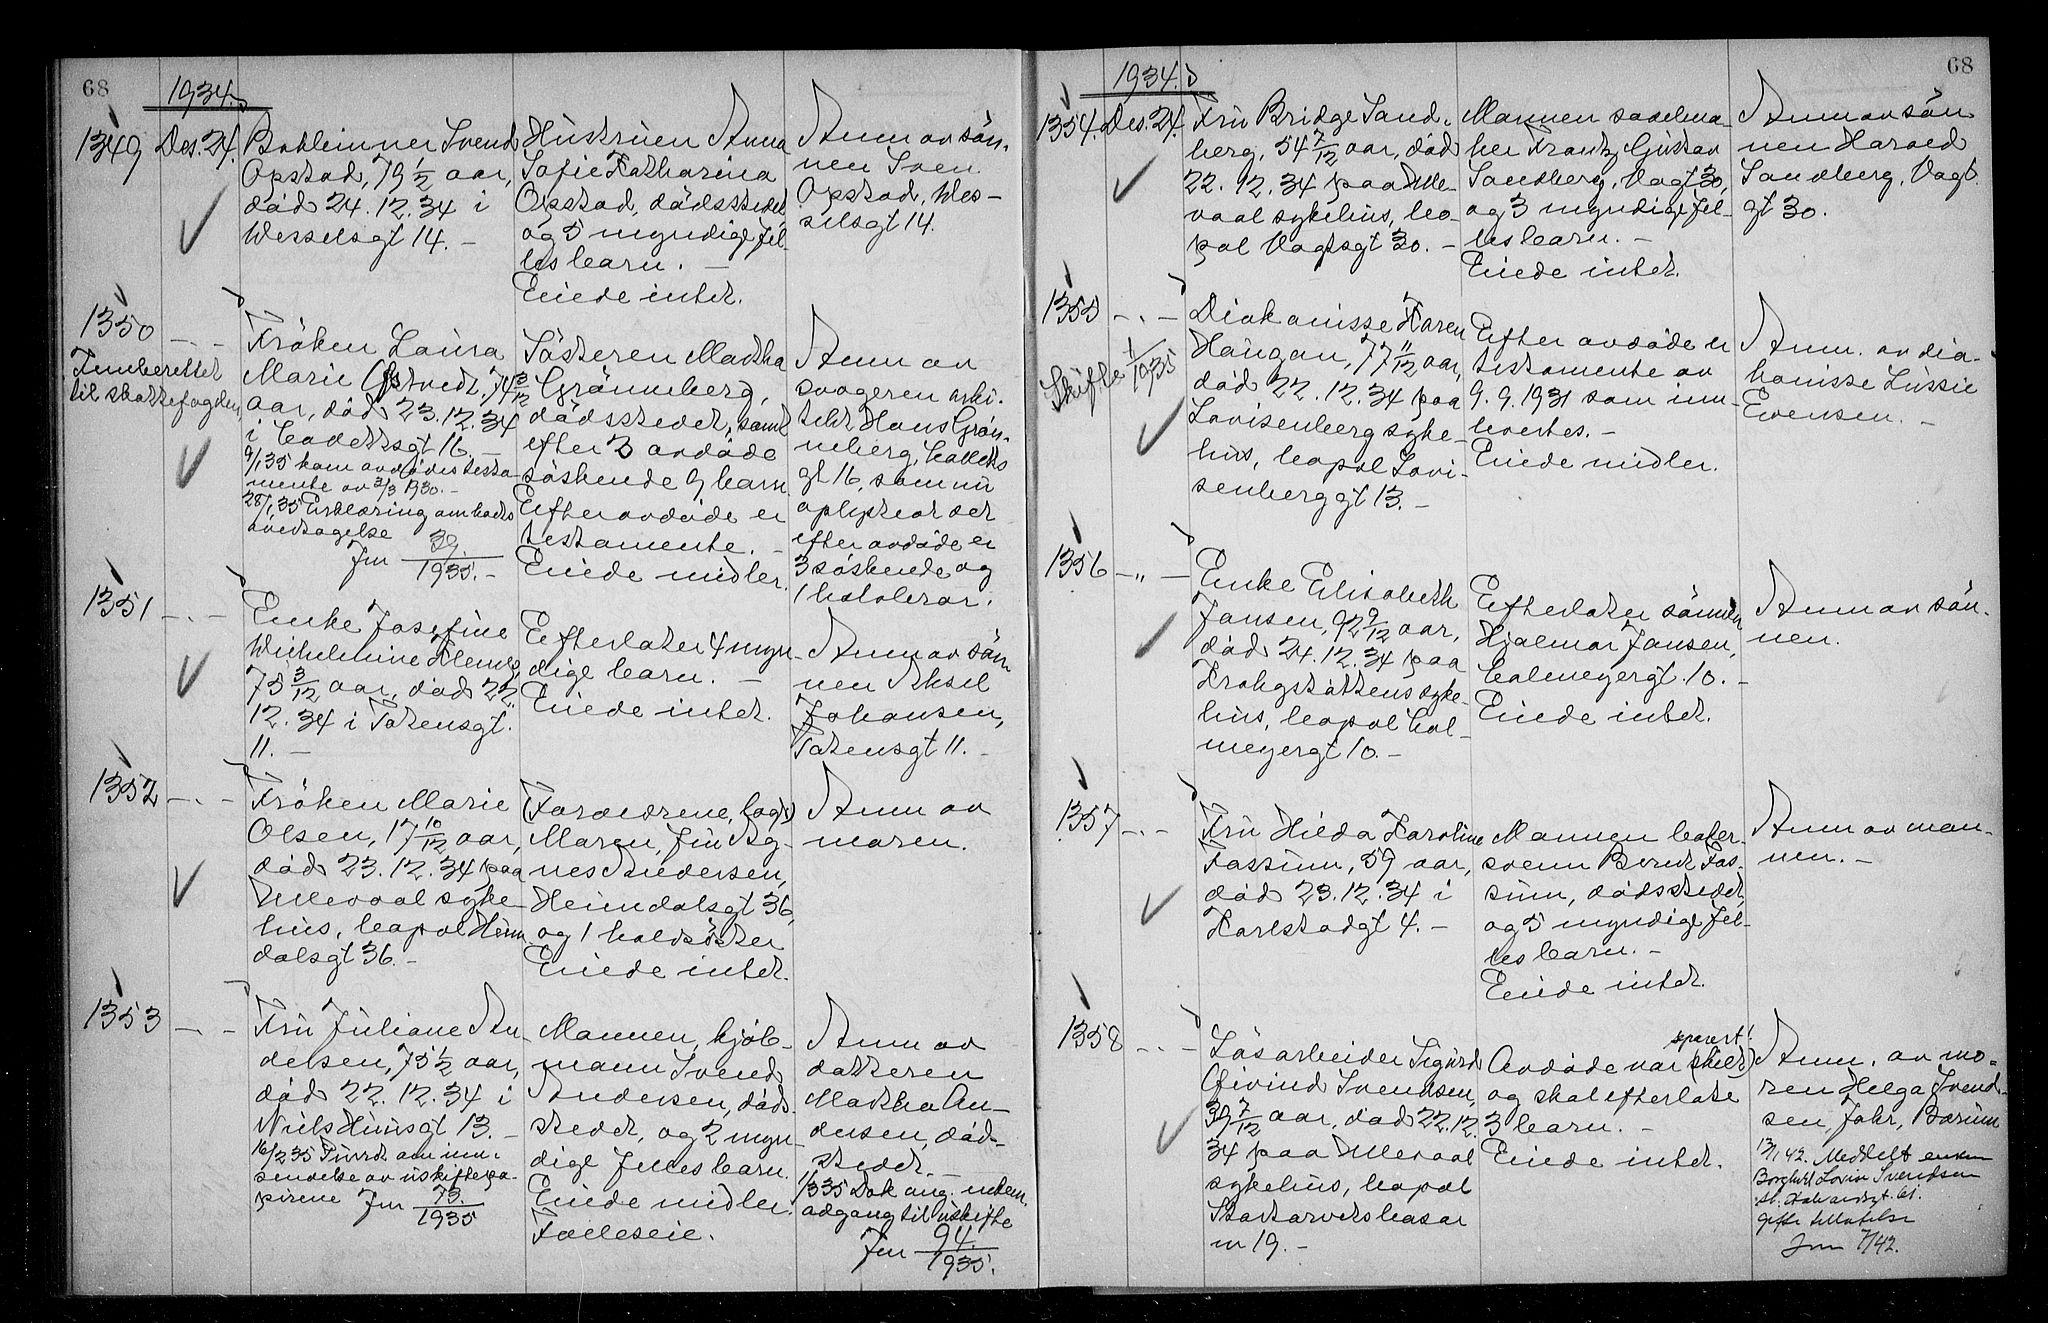 68
1934.
1349 Des. 24.
Opstad, 79 1/2 aar,
död 24.12.34 i
Wesselsgt 14. —
Hustruen Anna
Sofie Katharina
Opstad, dödsstedet
og 5 myndige fel-
les barn. —
Eiede intet.
Anm av sön-
nen Sven
Opstad, Wes-
selsgt 14.
1350 — . —
Fremberettet
til skattefogden
Fröken Laura
Marie 74 3/12
aar, död 23.12.34
i Cadettsgt 16. —
9/1 35 kom avdödes testa-
mente av 3/3 1930. —
28/1 35 Erklæring om bocts
overtagelse
Jnr 39/1935. —
Sösteren Martha
Grönneberg,
dödsstedet, samt
efter 3 avdöde
söskende 9 barn.
Efter avdöde er
testamente. —
Eiede midler.
Anm av
svogeren arki-
tekt Hans Grön-
neberg, Cadetts
gt 16, som nu
oplyste at det
efter avdöde er
3 söskende og
1 halvbror.
1351 — . —
Enke Josefine
Wilhelmine
75 3/12 aar, död 22.
12.34 i Totensgt.
11. —
Efterlater 4 myn-
dige barn. —
Eiede intet.
Anm av sön
nen Aksel
Johansen,
Totensgt 11. —
1352 — . —
Fröken Marie
Olsen, 17 10/12 aar,
död 23.12.34 paa
Ullevaal syke-
hus, bopæl Heim
dalsgt 36. —
(Forældrene fragt)
Moren, fru Ag-
nes Andersen,
Heimdalsgt 36,
og 1 halvsöster
Eiede intet.
Anm av
moren.
1353 — . —
Fru Juliane An
dersen, 75 1/2 aar,
död 22.12.34 i
Niels Huusgt 13. —
16/2 35 Purret om inn-
sendelse av uskiftepa-
pirene Jnr 73./1935
Mannen, kjöb-
mann Svend
Andersen, döds-
stedet, og 2 myn-
dige felles barn.
Eiede midler.
Fælleseie.
Anm av
datteren
Martha An-
dersen, död-
stedet. —
1/3 35 Dok ang. enkem.
adgang til uskifte
Jnr 94./1935.
68
1934.
1354. Des. 24.
Fru Bridge Sand-
berg, 54 7/12 aar, död
22.12.34 paa Ulle-
vaal sykehus, bo-
pæl Vogtsgt 30. —
Mannen sadelma-
ker Frantz Gustav
Sandberg, Vogtsgt 30,
og 3 myndige fel-
les barn. —
Eiede intet.
Anm av sön
nen Harald
Sandberg, Vogt.
gt 30.
1355 — . —
Skifte 1/1935
Diakonisse Karen
Haugan, 77 11/12 aar,
död 22.12.34 paa
Lovisenberg syke-
hus, bopæl Lovi-
senberggt 13. —
Efter avdöde er
testamente av
9.9.1931 som inn-
levertes. —
Eiede midler.
Anm. av dia-
konisse Lussie
Evensen. —
1356 — „ —
Enke Elisabeth
Jansen, 92 9/12 aar,
död 24.12.34 paa
Krohgstöttens syke-
hus, bopæl Cal-
meyergt 10. —
Efterlater sönnen
Hjalmar Jansen,
Calmeyergt. 10. —
Eiede intet.
Anm av sön-
nen.
1357 — . —
Fru Hilda Karoline
Fossum, 59 aar,
död 23.12.34 i
Karlstadgt 4. —
Mannen baker-
svenn Bernt Fos-
sum, dödsstedet,
og 5 myndige fel-
les barn. —
Eiede intet.
Anm av man-
nen. —
1358 — . —
Lösarbeider Sigurd
Eivind Svendsen,
39 7/12 aar, död 22.12.
34 paa Ullevaal
sykehus, bopæl
Storterveisbasar
nr 19. —
separert!
Avdöde var (skilt)
og skal efterlate
3 barn. —
Eiede intet.
Anm. av mo-
ren Helga Svend-
sen, Jahr, Bærum
13/1 42. Meddelt enken
Borghild Lovise Svendsen
St. Halvardsgt. 61.
gifte tillatelse
Jnr 7/42.